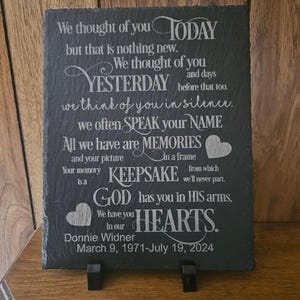 We thought of you TODAY
but that is nothing new.
We thought of you
YESTERDAY and days
before that too.
we think of you in silence.
we often SPEAK your NAME
All we have are MEMORIES
and your picture in a frame
Your memory is a KEEPSAKE from which we'll never part.
GOD has you in HIS arms,
We have you in our HEARTS.
Donnie Widner
March 9, 1971-July 19, 2024